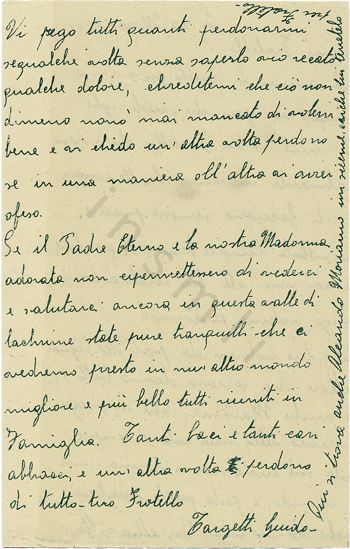 Vi prego tutti quanti perdonarmi
sequalche volta senza saperlo vio recato
qualche dolore, chredetemi che ciò non
dimeno nonò mai mancato di volervi
bene e vi chiedo un'altra volta perdono
se in una maniera oll'altra vi avrei
ofeso.
Se il Padre Eterno e la nostra Madonna
adorata non cipermettessero di vederci
e salutarci ancora in questa valle di
lachrime state pure tranquilli che ci
vedremo presto in nun'altro mondo
migliore e più bello tutti riuniti in
Famiglia. Tanti baci e tanti cari
abbracci, e un'altra volta perdono
di tutto-tuo Fratello
Targetti Guido-
Qui si trova anche Aleardo Mariano insieme. anche lui tenetelo
per Fratello-
insmli